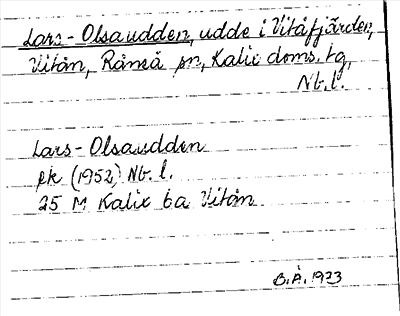 Lars-Olsaudden, udde i Vitåfjärden,
Vitån, Råneå sn, Kalix doms. tg,
Nb.l.
Lars-Olsaudden
pk (1952) Nb.l.
25 M Kalix 6a Vitån
B.Å. 1973